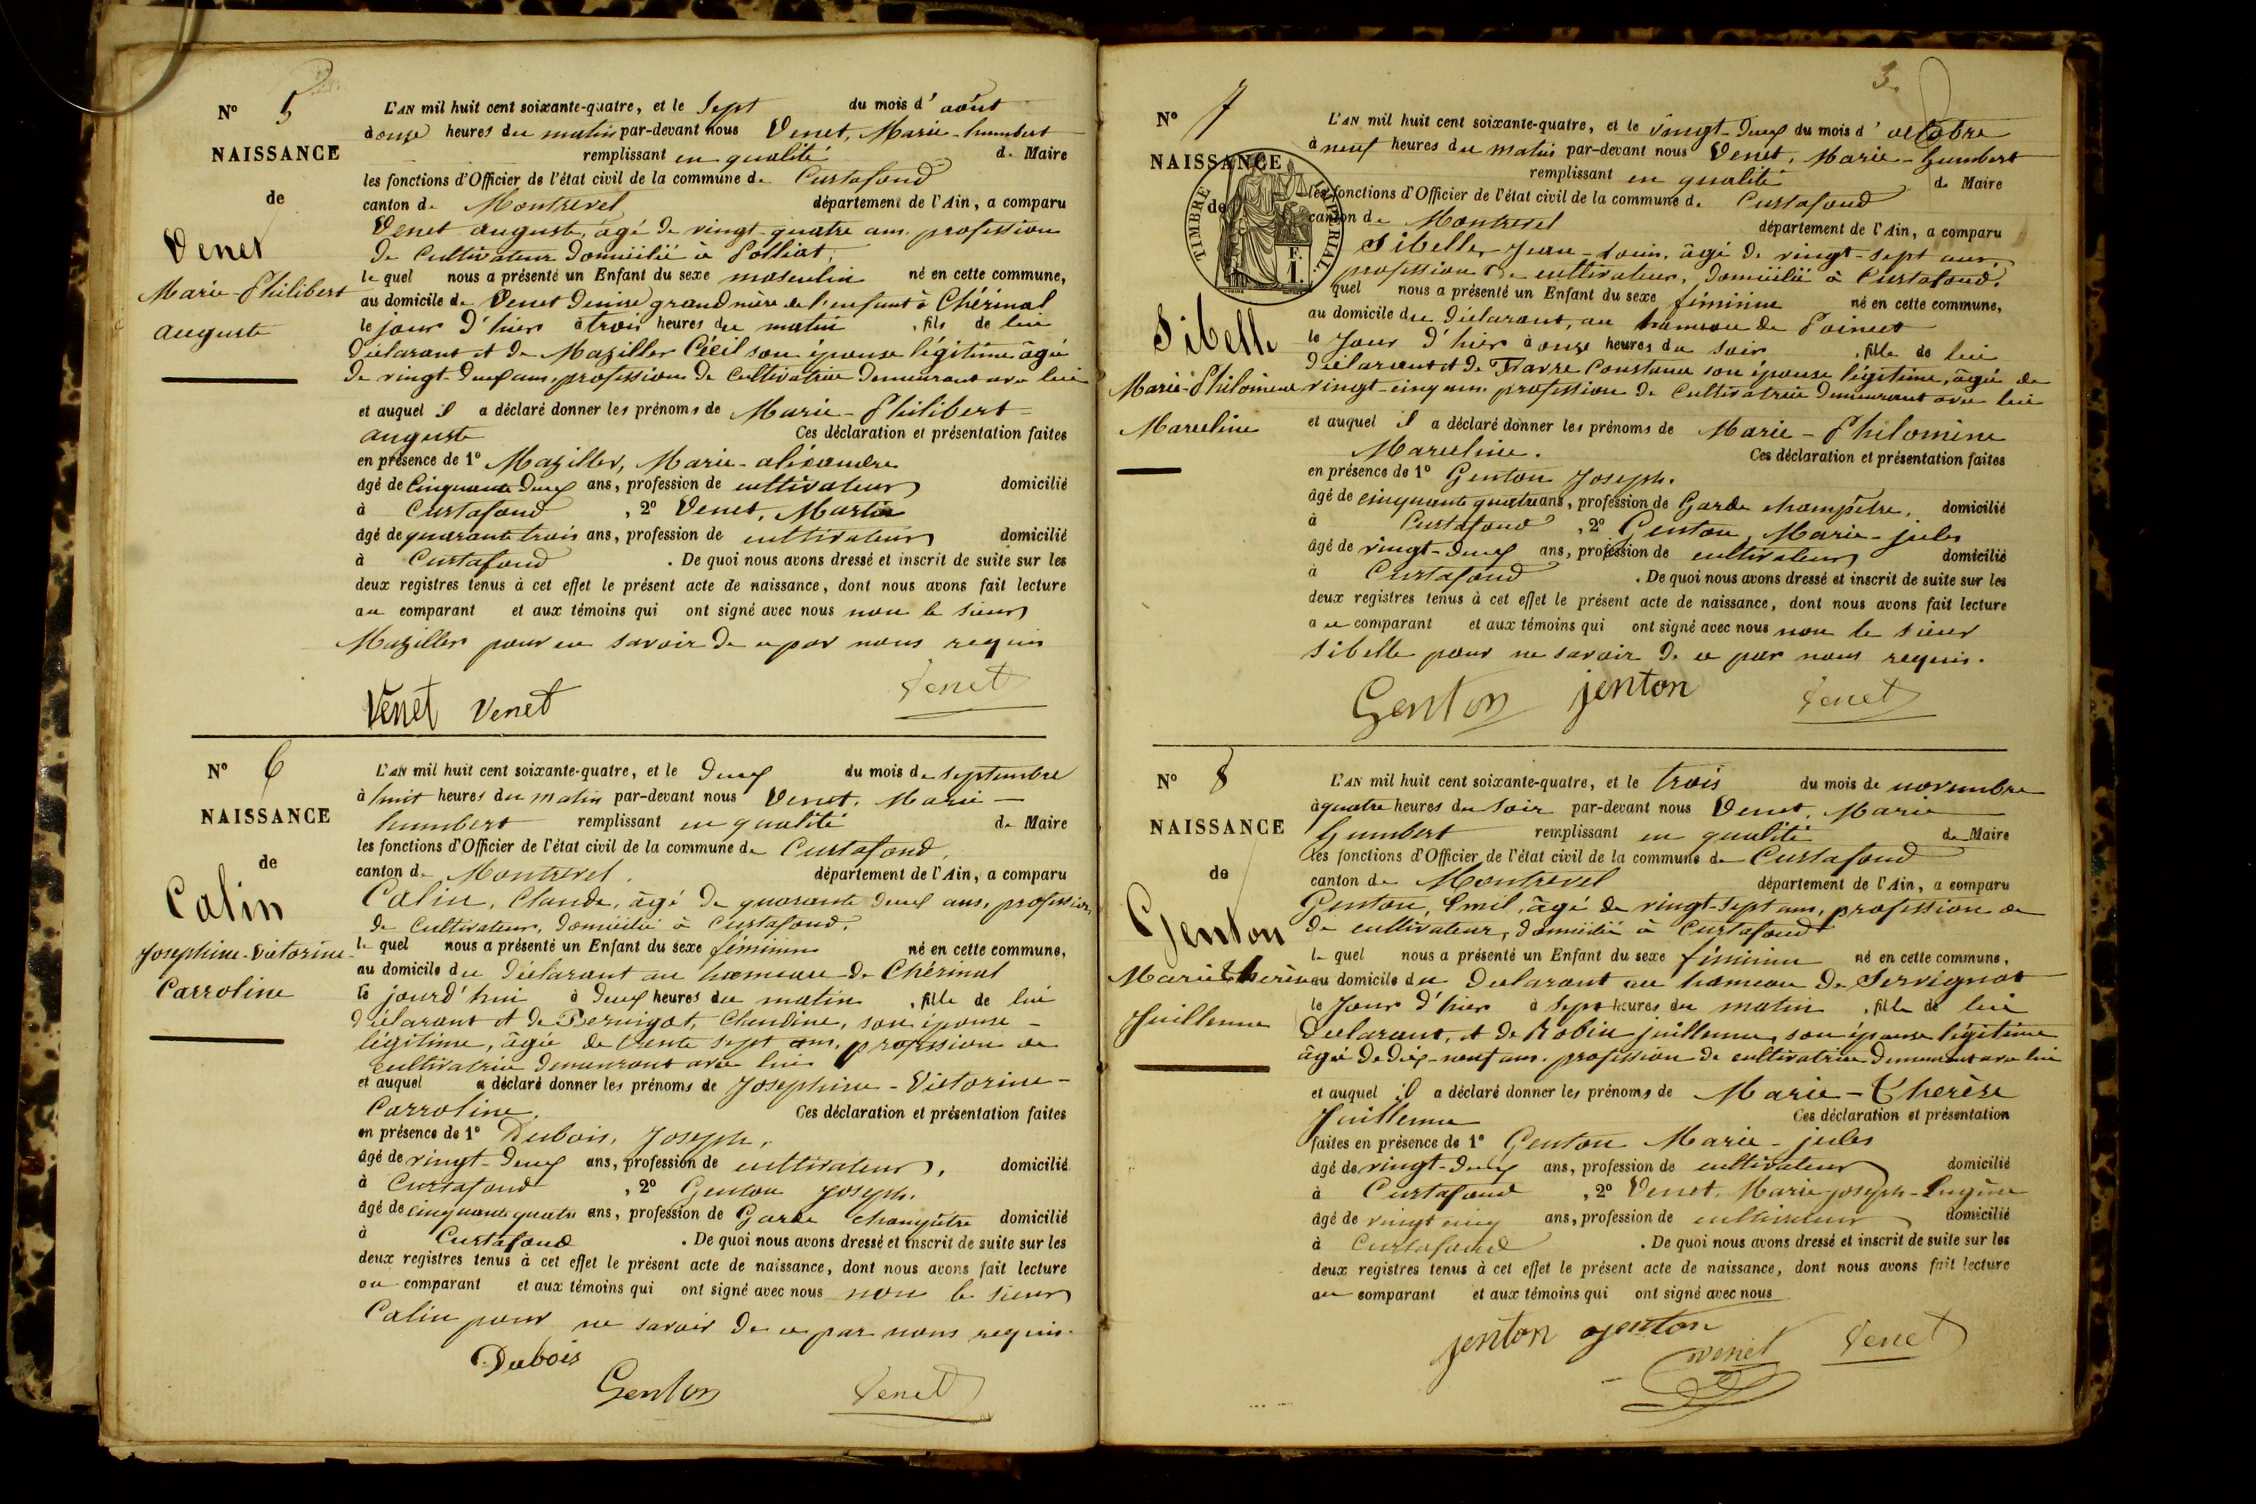 N° 5
NAISSANCE
de
Venet
Marie-Philibert
auguste
L'AN mil huit cent soixante-quatre, et le Sept du mois d'août
à onze heures du matin par-devant nous Venet, Marie-humbert
remplissant en qualité de Maire
les fonctions d'Officier de l'état civil de la commune de Curtafond
canton de Montrevel département de l'Ain, a comparu
Venet auguste, âgé de vingt-quatre ans, profession
de Cultivateur domicilié à Polliat,
le quel nous a présenté un Enfant du sexe masculin né en cette commune,
au domicile de Venet Denise grand mère de l'enfant à Chérinal
le jour d'hier à trois heures du matin, fils de lui
déclarant et de Maziller Cécil son épouse légitime âgée
de vingt-deux ans, profession de Cultivatrice demeurant avec lui
et auquel il a déclaré donner les prénoms de Marie-Philibert=
auguste Ces déclaration et présentation faites
en présence de 1° Maziller, Marie-aléxandre
âgé de Cinquante Deux ans, profession de cultivateur domicilié
à Curtafond, 2° Venet, Martin
âgé de quarante trois ans, profession de cultivateur domicilié
à Curtafond. De quoi nous avons dressé et inscrit de suite sur les
deux registres tenus à cet effet le présent acte de naissance, dont nous avons fait lecture
au comparant et aux témoins qui ont signé avec nous non le sieur
Maziller pour ne savoir de ce par nous requis
Venet Venet Venet
N° 6
NAISSANCE
de
Calin
Joséphine-Victorine-
Carroline
L'AN mil huit cent soixante-quatre, et le deux du mois de septembre
à huit heures du matin par-devant nous Venet, Marie-
humbert remplissant en qualité de Maire
les fonctions d'Officier de l'état civil de la commune de Curtafond,
canton de Montrevel. département de l'Ain, a comparu
Calin, Claude, âgé de quarante deux ans, profession
de Cultivateur, domicilié à Curtafond.
le quel nous a présenté un Enfant du sexe féminin né en cette commune,
au domicile du déclarant au hameau de Chérinal
le jourd'hui à deux heures du matin, fille de lui
déclarant et de Pernigot, Claudine, son épouse -
légitime, âgée de trente sept ans, profession de
cultivatrice demeurant avec lui
et auquel a déclaré donner les prénoms de Joséphine-Victorine-
Carroline. Ces déclaration et présentation faites
en présence de 1° Dubois, Joseph,
âgé de vingt-deux ans, profession de cultivateur, domicilié
à Curtafond, 2° Genton Joseph.
âgé de cinquante quatre ans, profession de Garde champêtre domicilié
à Curtafond. De quoi nous avons dressé et inscrit de suite sur les
deux registres tenus à cet effet le présent acte de naissance, dont nous avons fait lecture
au comparant et aux témoins qui ont signé avec nous non le sieur
Calin pour ne savoir de ce par nous requis.
Dubois
Genton Venet
3.
N° 7
NAISSANCE
de
TIMBRE IMPERIAL.
F.
1.
Sibelle
Marie-Philomène
Marceline
L'AN mil huit cent soixante-quatre, et le vingt-deux du mois d'octobre
à neuf heures du matin par-devant nous Venet, Marie-humbert
remplissant en qualité de Maire
les fonctions d'Officier de l'état civil de la commune de Curtafond
canton de Montrevel département de l'Ain, a comparu
Sibelle, Jean-Louis, âgé de vingt-sept ans,
profession de cultivateur, domicilié à Curtafond.
quel nous a présenté un Enfant du sexe féminin né en cette commune,
au domicile du déclarant, au hameau de Poincet
le Jour d'hier à onze heures du soir, fille de lui
déclarant et de Favre Constance son épouse légitime, âgée de
vingt-cinq ans profession de Cultivatrice demeurant avec lui
et auquel il a déclaré donner les prénoms de Marie-Philomène
Marceline. Ces déclaration et présentation faites
en présence de 1° Genton Joseph.
âgé de cinquante quatre ans, profession de Garde champêtre, domicilié
à Curtafond, 2° Genton, Marie-jules
âgé de vingt-deux ans, profession de cultivateur domicilié
à Curtafond. De quoi nous avons dressé et inscrit de suite sur les
deux registres tenus à cet effet le présent acte de naissance, dont nous avons fait lecture
au comparant et aux témoins qui ont signé avec nous non le sieur
Sibelle pour ne savoir de ce par nous requis.
Genton jenton Venet
N° 8
NAISSANCE
de
Genton
Marie Therèse
Juillenne
L'AN mil huit cent soixante-quatre, et le trois du mois de novembre
à quatre heures du soir par-devant nous Venet, Marie
humbert remplissant en qualité de Maire
les fonctions d'Officier de l'état civil de la commune de Curtafond
canton de Montrevel département de l'Ain, a comparu
Genton, Emil, âgé de vingt-sept ans, profession de
de cultivateur, domicilié à Curtafond
le quel nous a présenté un Enfant du sexe féminin né en cette commune,
au domicile du declarant au hameau de Servignat
le Jour d'hier à sept heures du matin, fille de lui
Declarant, et de Robin juillenne, son épouse légitime
âgée de dix-neuf ans, profession de cultivatrice demeurant avec lui
et auquel il a déclaré donner les prénoms de Marie-Therèse
Juillenne Ces déclaration et présentation
faites en présence de 1° Genton Marie-jules
âgé de vingt-deux ans, profession de cultivateur domicilié
à Curtafond, 2° Venet, Marie joseph-Eugène
âgé de vingt cinq ans, profession de cultivateur domicilié
à Curtafond. De quoi nous avons dressé et inscrit de suite sur les
deux registres tenus à cet effet le présent acte de naissance, dont nous avons fait lecture
au comparant et aux témoins qui ont signé avec nous
jenton jenton
venet Venet